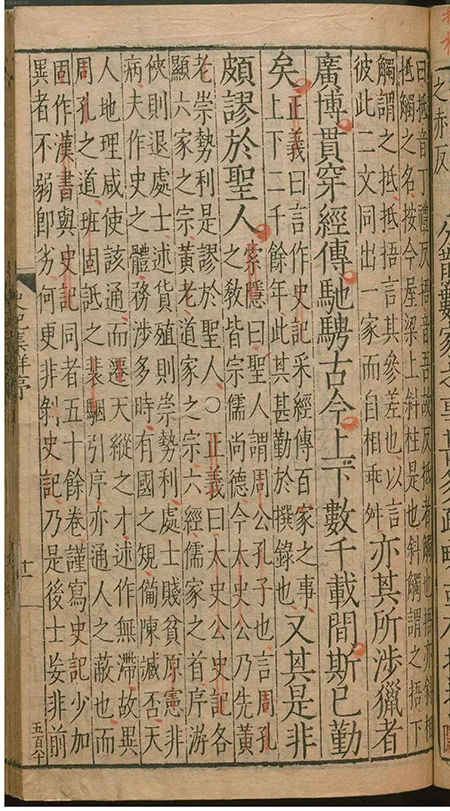 之赤反
曰抵音丁禮反捂音吾故反抵者觸也捂亦斜相
抵觸之名按今屋梁上斜柱是也斜觸謂之捂下
觸謂之抵抵捂言其參差也以言
彼此二文同出一家而自相乖舛
亦其所涉獵者
廣博貫穿經傳馳騁古今上下數千載間斯已勤
矣
正義曰言作史記采經傳百家之事
上下二千餘年此其甚勤於撰錄也
又其是非
頗謬於聖人
索隱曰聖人謂周公孔子也言周孔
之敎皆宗儒尚德今太史公乃先黃
老崇勢利是謬於聖人○正義曰太史公史記各
顯六家之宗黃老道家之宗六經儒家之首序游
俠則退處士述貨殖則崇勢利處士賤貧原憲非
病夫作史之體務涉多時有國之規備陳臧否天
人地理咸使該通而遷天縱之才述作無滯故異
周孔之道班固詆之裴駰引序亦通人之蔽也而
固作漢書與史記同者五十餘卷謹寫史記少加
異者不弱卽劣何更非剝史記乃是後士妄非前
史記集解序
十一